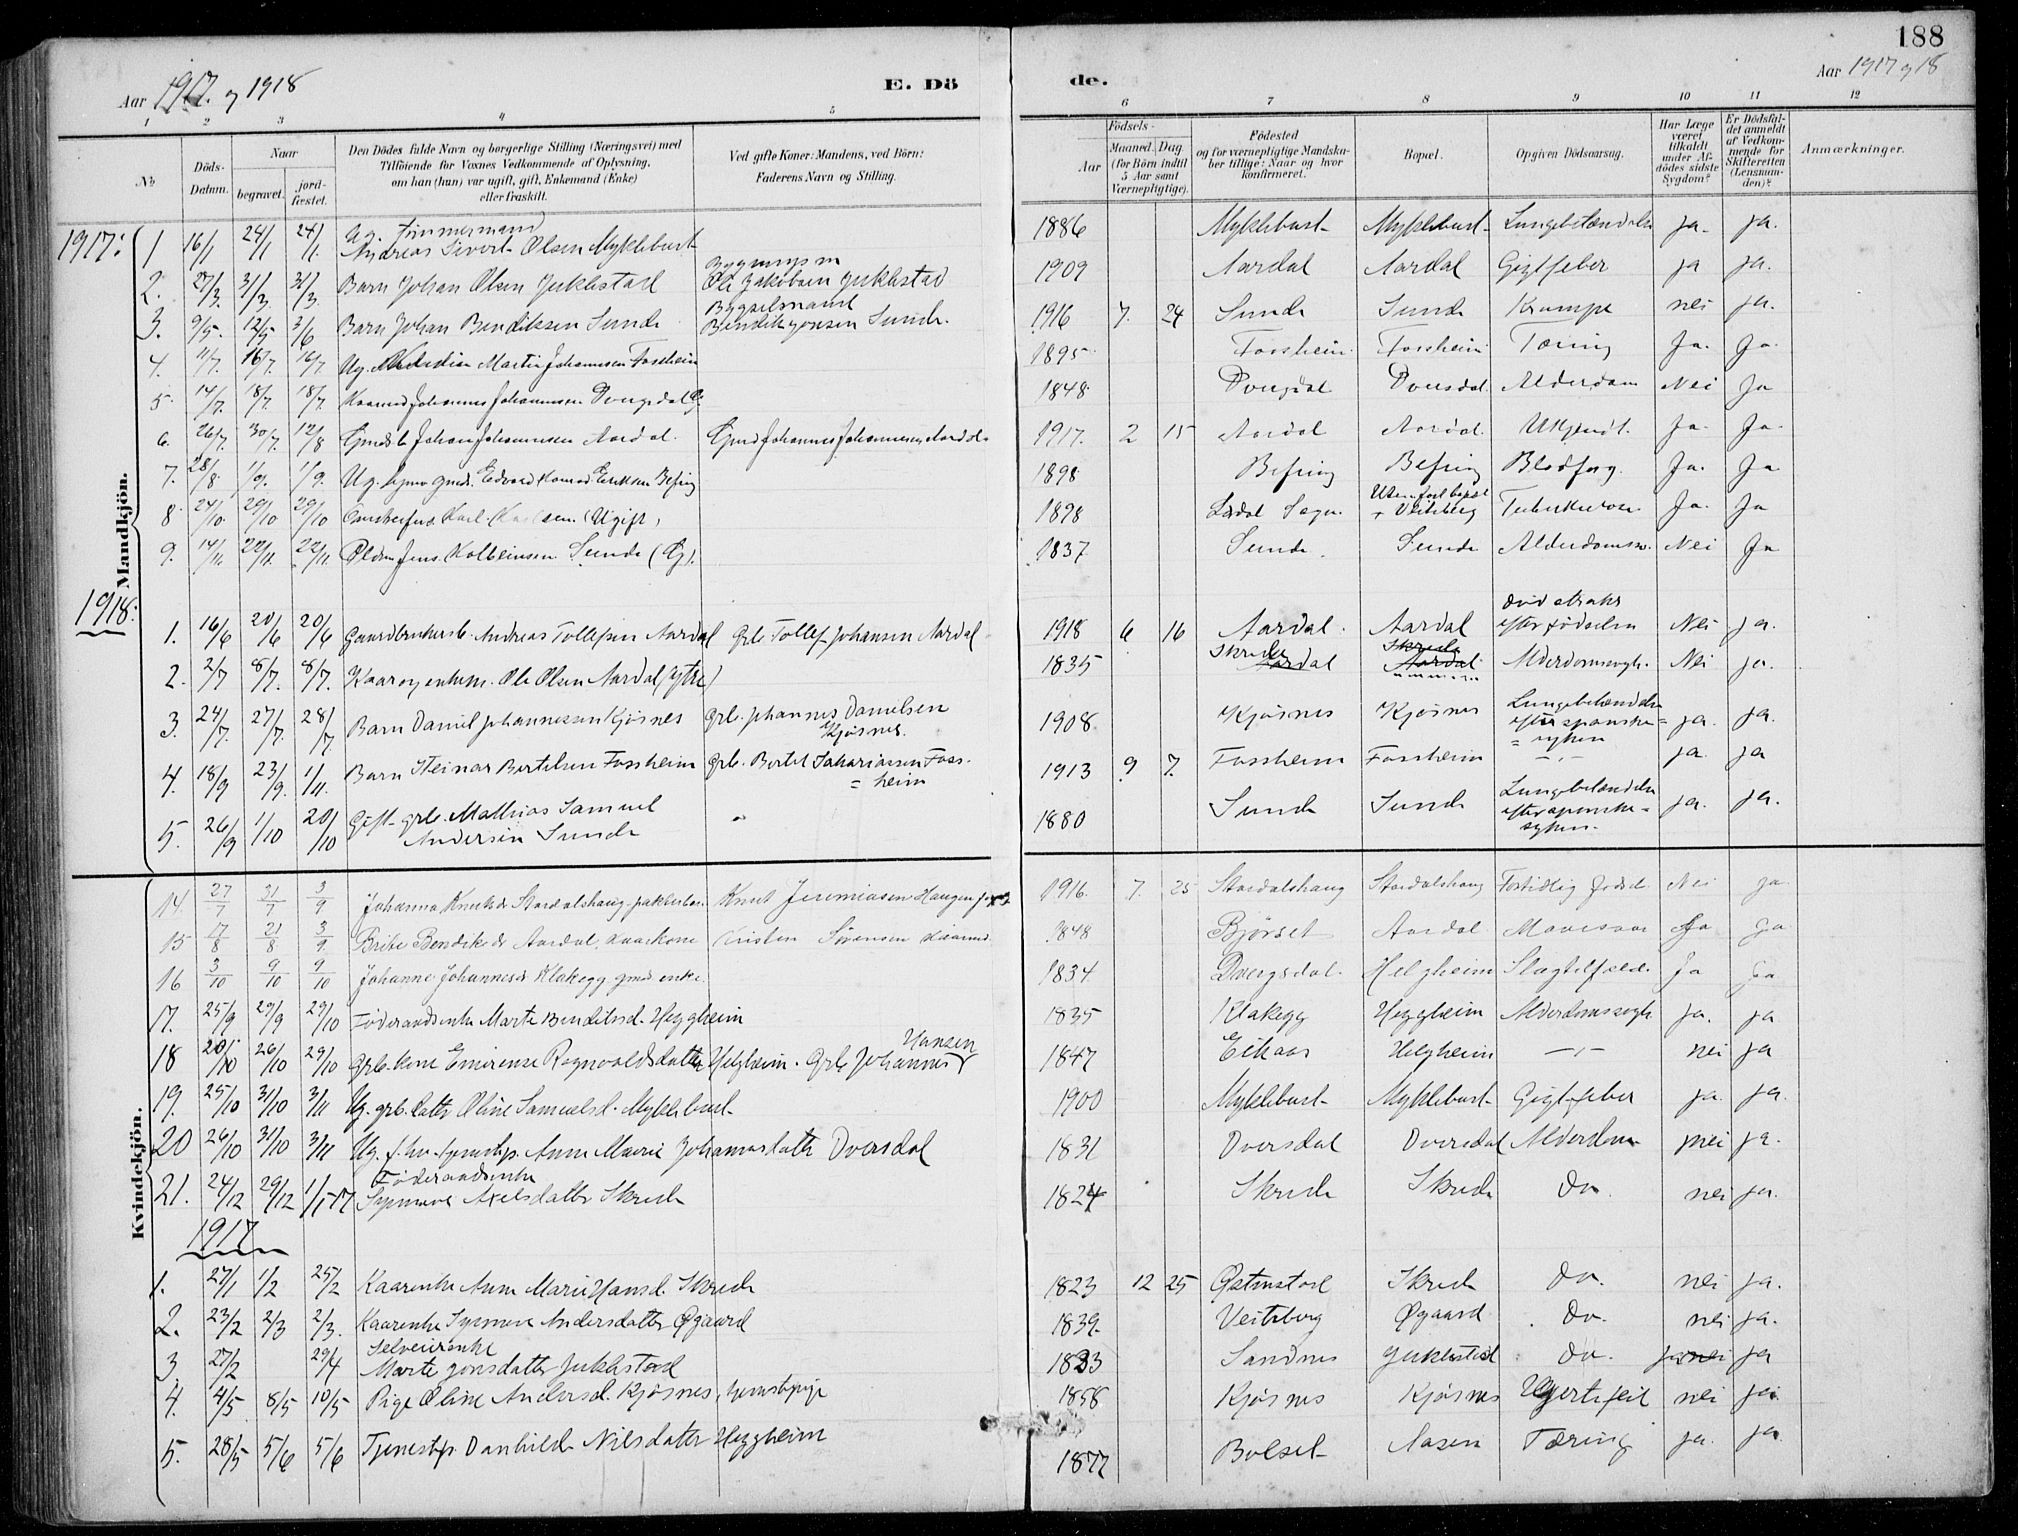 188
Aar 1917. og 1918
E. Dö
de.
Aar 1917 og 18
1 2 3 4 5 6 7 8 9 10 11 12
No
Döds-Datum.
Naar
begravet.
jord-fæstet.
Den Dödes fulde Navn og borgerlige Stilling (Næringsvei) med
Tilföiende for Voxnes Vedkommende af Oplysning,
om han (hun) var ugift, gift, Enkemand (Enke)
eller fraskilt.
Ved gifte Koner: Mandens, ved Börn:
Faderens Navn og Stilling.
Födsels-
Aar
Maaned. Dag
(for Börn indtil
5 Aar samt
Værnepligtige).
Födested
og for værnepligtige Mandska-
ber tillige: Naar og hvor
konfirmeret.
Bopæl.
Opgiven Dödsaarsag.
Har Læge
været
tilkaldt
under Af-
dödes sidste
Sygdom?
Er Dödsfal-
det anmeldt
af Vedkom-
mende for
Skifteretten
(Lensman-
den)?
Anmærkninger.
Mandkjön.
1917:
1 16/1 24/1 24/1 Ug. Tømmermand Andreas Sivert Olsen Myklebust 1886 Myklebust Myklebust Lungebetændelse ja. ja.
2. 27/3. 31/3. 31/3. Barn Johan Olsen Juklestad Ole Jakobsen Juklestad 1909 Aardal Aardal Gigtfeber ja ja.
3. 9/5. 12/5 3/6 Barn Johan Bendiksen Sunde Bygselmand Bendik Jonsen Sunde. 1916 7. 24 Sunde Sunde Krampe nei ja.
4. 11/7. 16/7. 16/7. Ug. Martin Johannesen Fossheim 1895 Fossheim Fossheim Tæring Ja. Ja.
5 14/7. 18/7. 18/7. Kaarmd Johannes Johannessen 1848 Alderdom Nei Ja
6. 26/7. 30/7. 12/8 Johan Johannesen Aardal. Gmd Johannes Johannesen Aardal 1917. 2 15 Aardal Aardal Ukjendt. Ja. Ja.
7. 28/8 1/9. 1/9. Ug. Edvard Konrad Eriksen Befring 1898 Befring Befring Blodforg. Ja. Ja
8 24/10. 29/10 29/10 Karl (Ugift) 1898 Veiteberg Tuberkulose Ja. Ja
9. 14/11. 22/11. 22/11. Jens Kolbeinsen Sunde (G). 1837 Sunde Sunde Alderdomssv. Nei Ja
1918:
1. 16/6 20/6 20/6 Gaardbrukers b. Andreas Tollefsen Aardal Grb. Tollef Johansen Aardal 1918 6 16 Aardal. Aardal død straks efter fødselen Nei ja.
2. 2/7 8/7. 8/7. Kaar og enkem. Ole Olsen Aardal (ytre) 1835 Skrede Aardal Skrede Aardal Alderdomssvgh. Nei ja.
3. 24/7. 27/7. 28/7 Barn Daniel Johannessen Kjøsnes Grb. Johannes Danielsen Kjøsnes. 1908 Kjøsnes Kjøsnes Lungebetændelse efter spanske= =syken ja. ja.
4. 18/9 23/9. 1/11. Barn Steinar Bertelsen Fossheim Grb. Bertel Sakariassen Foss= =heim 1913 9 7. Fossheim Fossheim -"- ja. ja
5. 26/9 1/10 20/10 Gift grb. Mathias Samuel Andersen Sunde " 1880 Sunde Sunde Lungebetændelse efter spanske= syken. ja. ja.
Kvindekjön.
14. 27/7 31/7 3/9 Johanna Knutsdr Stardalshaug Knut Jeremiasen Haugen 1916. 7. 25 Stardalshaug Stardalshaug Fortidlig fødsel Nei Ja
15 17/8 21/8 3/9. Brite Bendiksdr Aardal, kaarkone Kristen Sørensen kaarmd. 1848 Bjørset Aardal Mavesaar Ja Ja
16 3/10 9/10 9/10 Johanne Johannesdr Klakegg gmd enke. 1834. Helgheim Slagtilfælde. Ja Ja
17. 25/9 29/9 29/10 Føderaadsenke Marte Bendiksd. Heggheim 1835 Klakegg Heggheim Alderdomssvgh. ja. ja
18 20/10 26/10 29/10 Grb. kone Emirense Ragnvaldsdatter Helgheim. Grb Johannes Hansen 1847 Eikaas Helgheim -"- nei ja
19. 25/10 31/10 3/11 Ug. grb. datter Oline Samuelsd. Myklebust 1900 Myklebust Myklebust Gigtfeber ja. ja.
20 26/10 31/10 3/11 Ug. f. hv. tjenestp. Anne Marie Johannesdatter Dvorsdal 1831 Dvorsdal Dvorsdal Alderdom nei ja.
21. 24/12 29/12 1/1-17 Føderaadsenke Synneve Axelsdatter Skrede 1824 Skrede Skrede do. nei ja.
1917
1. 27/1 1/2 25/2 Kaarenke Anne Marie Hansd. Skrede 1823 12 25 Østenstad Skrede do. nei ja.
2. 23/2 2/3 2/3. Kaarenke Synneve Andersdatter Øgaard 1839. Veiteberg Øgaard do. nei ja.
3. 27/2 29/4 Selveierenke Marte Jonsdatter Juklestad 1833 Sandnes Juklestad do. nei ja
4. 4/5 8/5 10/5 Pige Oline Andersd. Kjøsnes, tjenestepige 1858 Kjøsnes Kjøsnes Hjertefeil nei ja.
5. 28/5 5/6 5/6 Tjenestp. Danhild Nilsdatter Heggheim 1877 Bolset Aasen Tæring ja. ja.